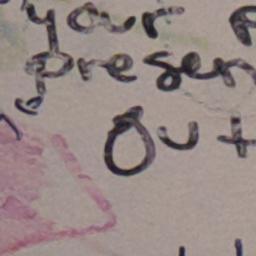 your
presen
Out